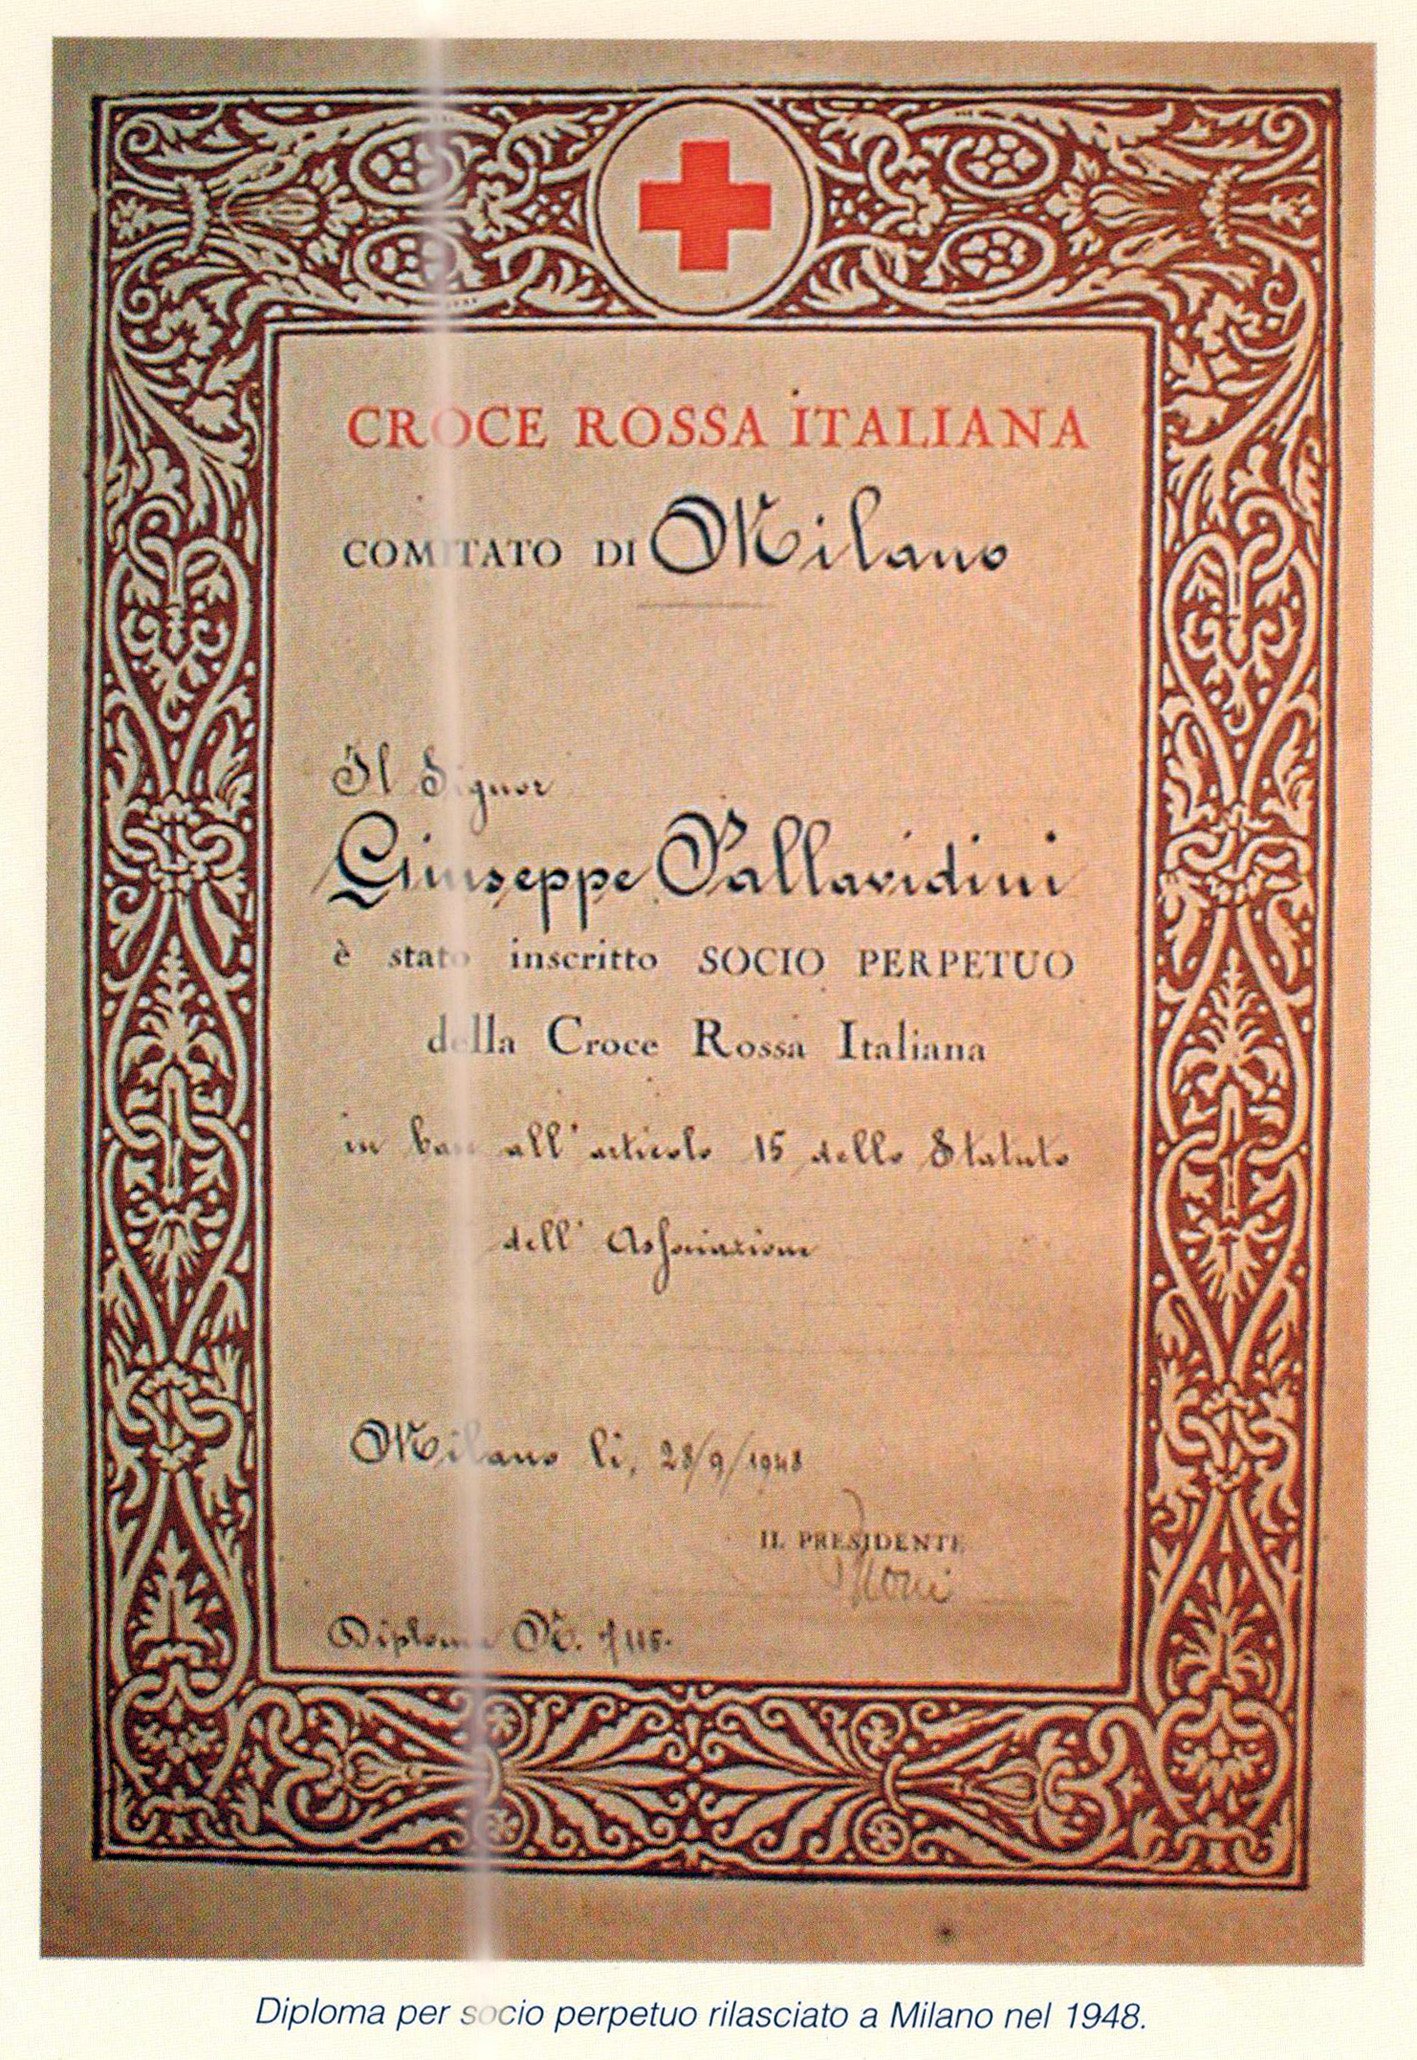 CROCE ROSSA ITALIANA
COMITATO DI Milano
Il Signor
Giuseppe Pallavidini
è stato inscritto SOCIO PERPETUO
della Croce Rossa Italiana
in base all'articolo 15 dello Statuto
dell'Associazione
Milano li, 28/9/1948
IL PRESIDENTE
Diploma N.
Diploma per socio perpetuo rilasciato a Milano nel 1948.